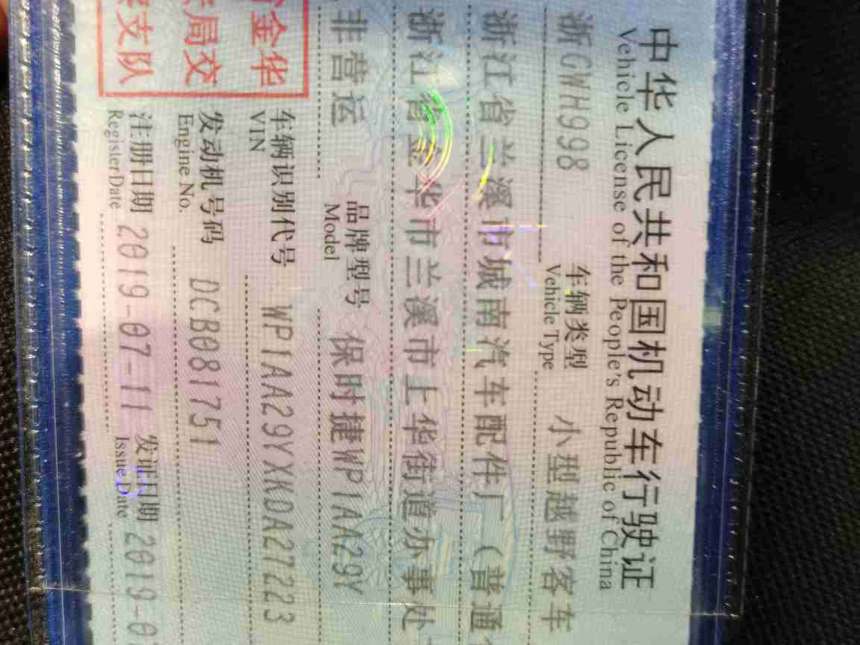 中华人民共和国机动车行驶证
Vehicle License of the People's Republic of China
浙GWH998 车辆类型 小型越野客车
Vehicle Type
浙江省兰溪市城南汽车配件厂（普通
浙江省金华市兰溪市上华街道办事处
非营运 品牌型号 保时捷WP1AA29Y
Model
车辆识别代号 WP1AA29YXKDA27223
VIN
金华
局交
支队
发动机号码 DCB081751
Engine No.
注册日期 2019-07-11 发证日期 2019-0
Register Date Issue Date